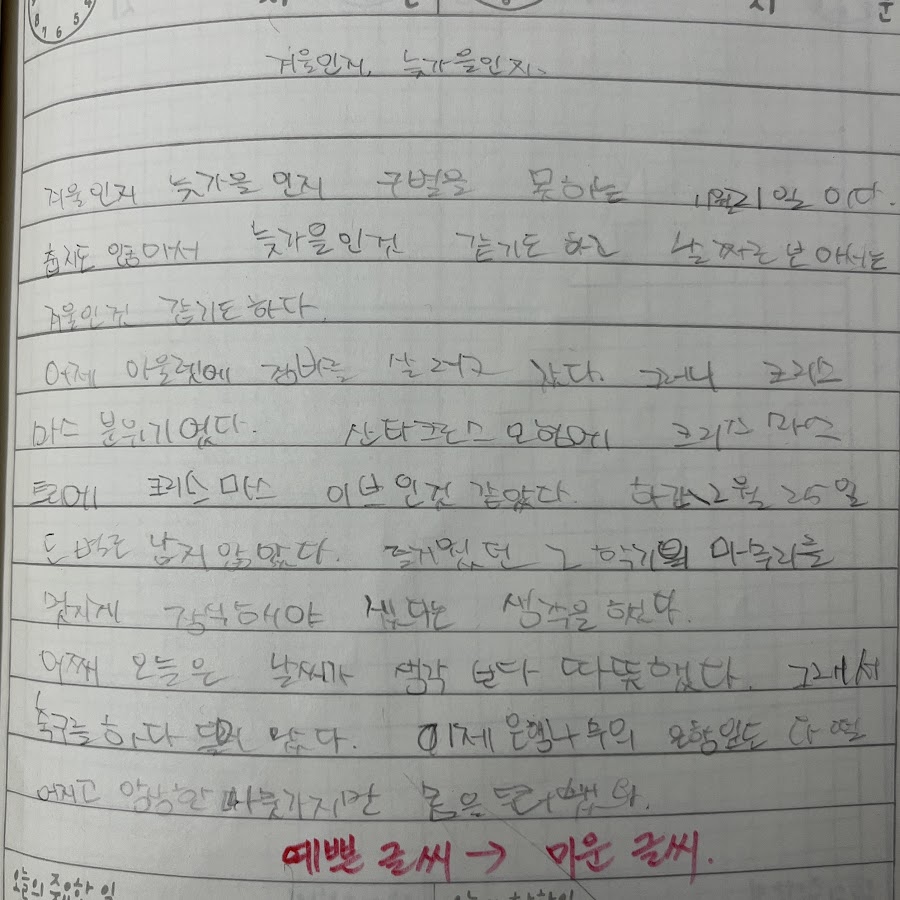 시 분 시 분
겨울인지, 늦가을인지.
겨울인지 늦가을 인지 구별을 못하는 11월21일 이다.
춥지도 않아서 늦가을인것 같기도 하고 날짜로 보아서는
겨울인것 같기도하다.
어제 아울렛에 잠바를 살려고 갔다. 그러니 크리스
마스 분위기였다. 산타크로스 모형에 크리스마스
트리에 크리스마스 이브인것 같았다. 하긴 12월 25일
도 별로 남지 않았다. 즐거웠던 그 학기의 마무리를
멋지게 장식해야 겠다는 생각을 했다.
어째 오늘은 날씨가 생각 보다 따뜻했다. 그래서
축구를 하다 땀이 났다. 이제 은행나무의 은행잎도 다 떨
어지고 앙상한 나뭇가지만
예쁜 글씨 → 미운 글씨.
오늘의 중요한 일